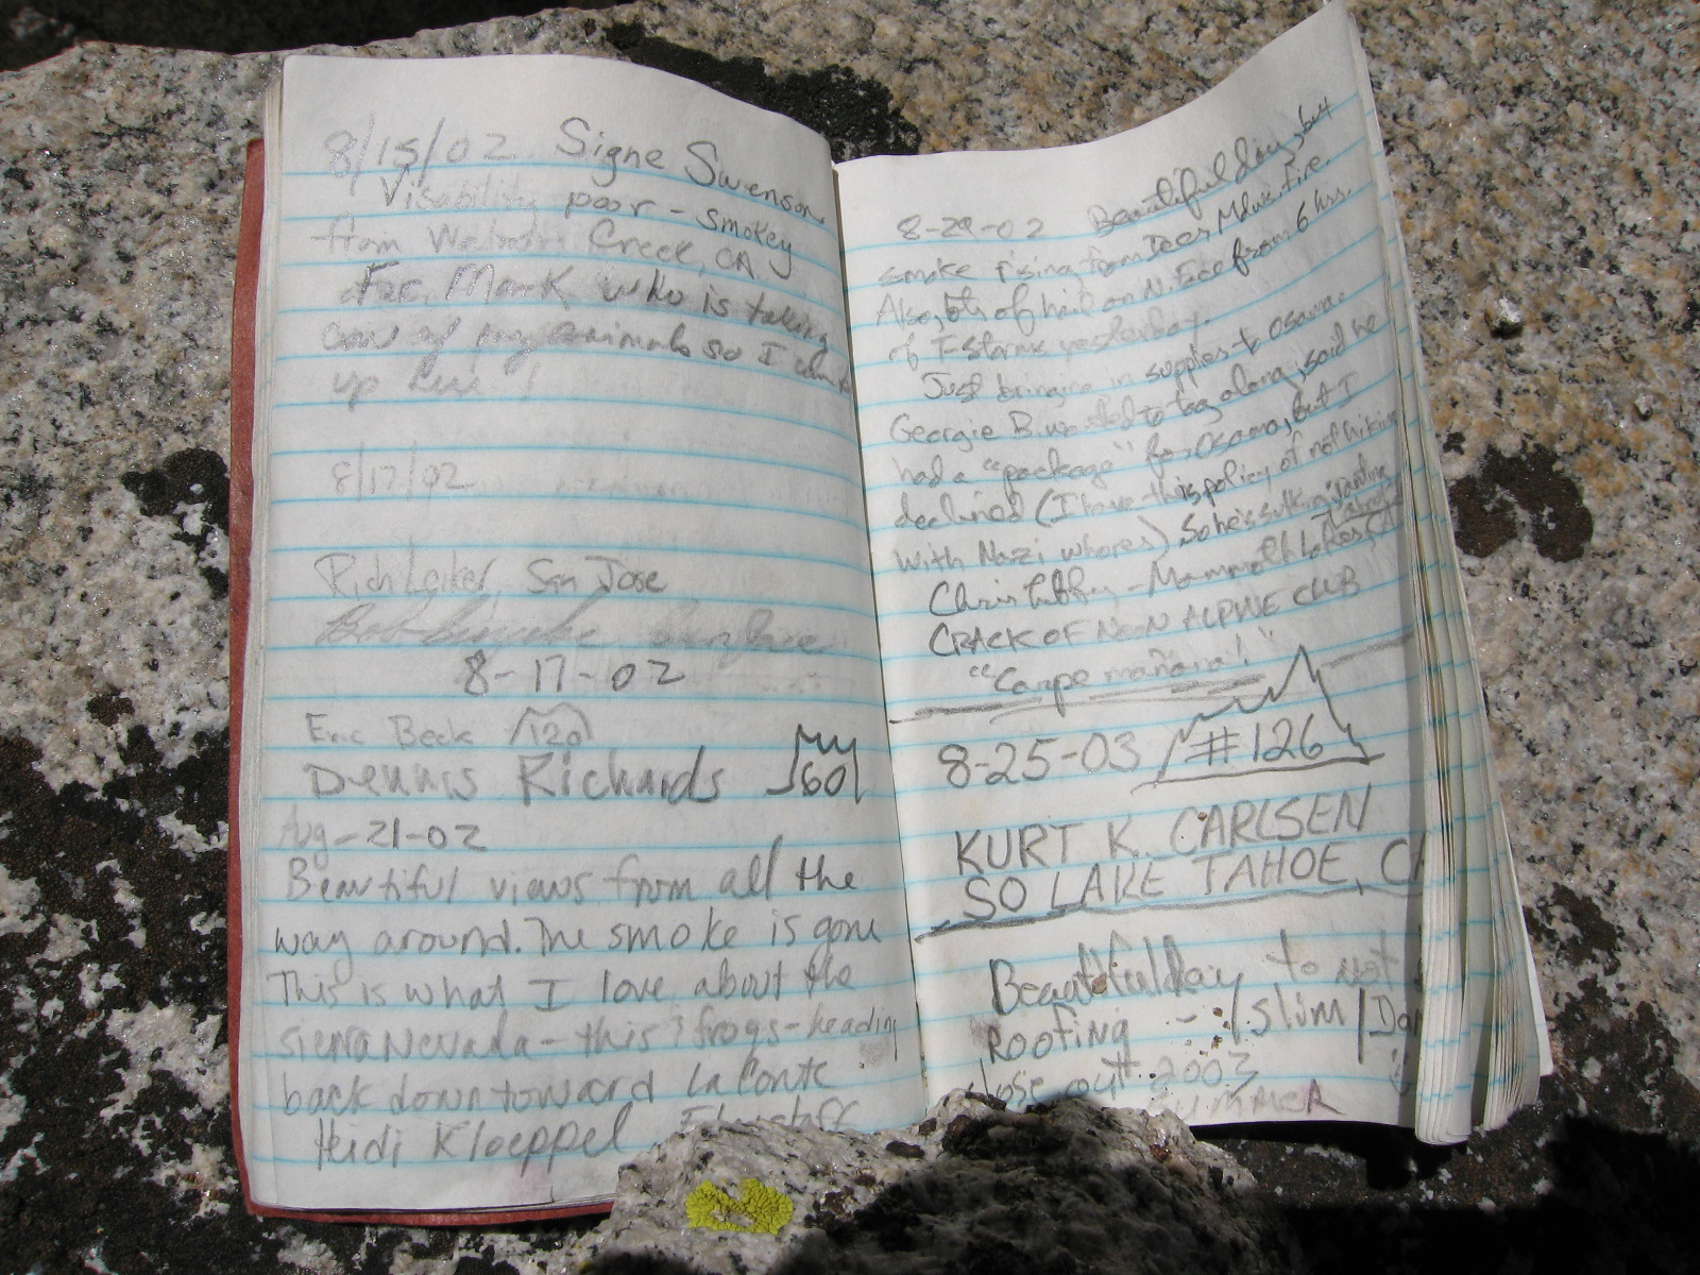 8/15/02 Signe Swenson
Visability poor - smokey
from Walnut Creek, CA
For Mark who is taking
care of my animals so I can
up here!
8/17/02
Rich Leiker, San Jose
8-17-02
Eric Beck 120
Dennis Richards My 60
Aug-21-02
Beautiful views from all the
way around. The smoke is gone
This is what I love about the
sierra Nevada - this & frogs - heading
back down toward La Conte
Heidi Kloeppel, Flagstaff
8-29-02 Beautiful day, but
smoke rising from Deer Mdw. fire.
Also, lots of hail on N. Face from 6 hrs.
of T-storms yesterday.
Just bringing in supplies to Osama.
Georgie B. wanted to tag along, said he
had a "package" for Osama, but I
declined (I have this policy of not hiking
with Nazi whores) So he's sulking
Chris - Mammoth Lakes, CA
CRACK OF NOON ALPINE CLUB
"Carpe mañana!"
8-25-03 #126
KURT K. CARLSEN
SO LAKE TAHOE, CA
Beautiful day to not
Roofing - Slim / Dan
close out 2003
SUMMER